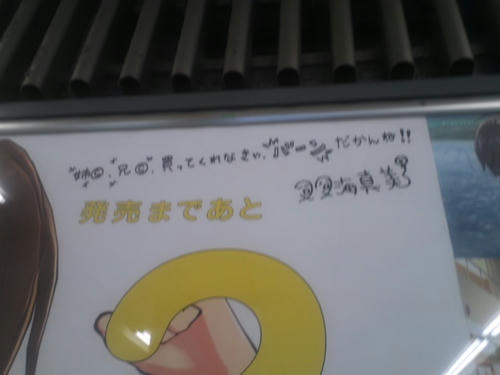 姉㋳、兄㋳、買ってくれなきゃ、バーンだかんね!!
双海真美
発売まであと
2